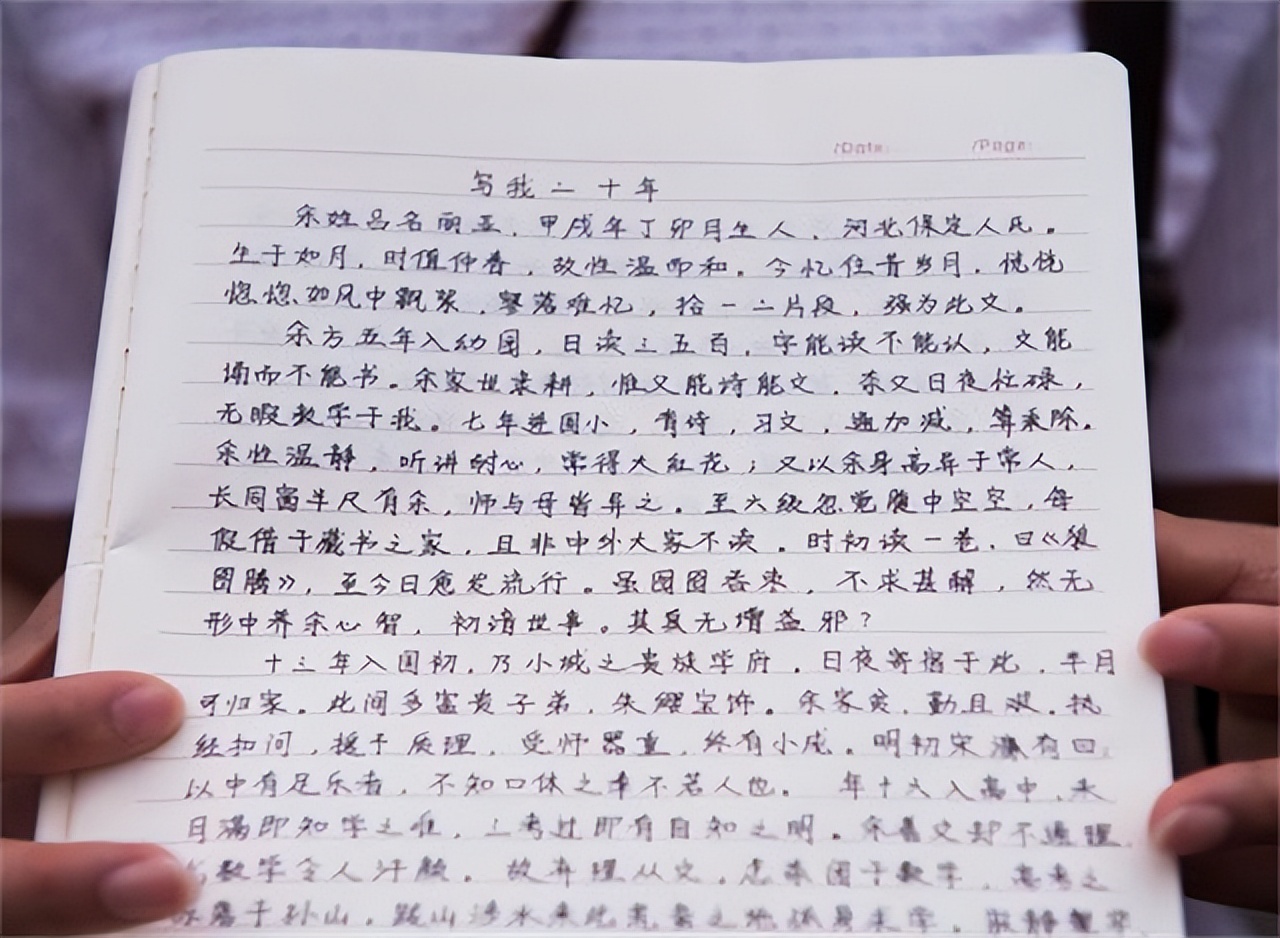 /Date: /Page:
写我二十年
余姓吕名丽亚，甲戌年丁卯月生人，河北保定人氏。
生于如月，时值仲春，故性温而和。今忆往昔岁月，恍恍
惚惚，如风中飘絮，零落难忆，拾一二片段，强为此文。
余方五年入幼园，日读三五百，字能读不能认，文能
诵而不能书。余家世袭耕，惟父能诗能文，奈父日夜忙碌，
无暇教学于我。七年进国小，背诗，习文，通加减，算乘除。
余性温静，听讲耐心，常得大红花；又以余身高异于常人，
长同窗半尺有余，师与母皆异之。至六级忽觉腹中空空，每
假借于藏书之家，且非中外大家不读。时初读一卷，曰《狼
图腾》，至今日愈发流行。虽囫囵吞枣，不求甚解，然无
形中养余心智，初谙世事。其真无增益邪？
十三年入国初，乃小城之贵族学府，日夜寄宿于此，半月
可归家。此间多富贵子弟，朱缨宝饰。余家贫，勤且艰，执
经扣问，援于质理，受师器重，终有小成。明初宋濂有曰，
以中有足乐者，不知口体之奉不若人也。 年十六入高中，未
月满即知学之难，二考过即有自知之明。余喜文却不通理，
数学令人汗颜。故弃理从文，怎奈困于数学，高考之
落于孙山，跋山涉水来此